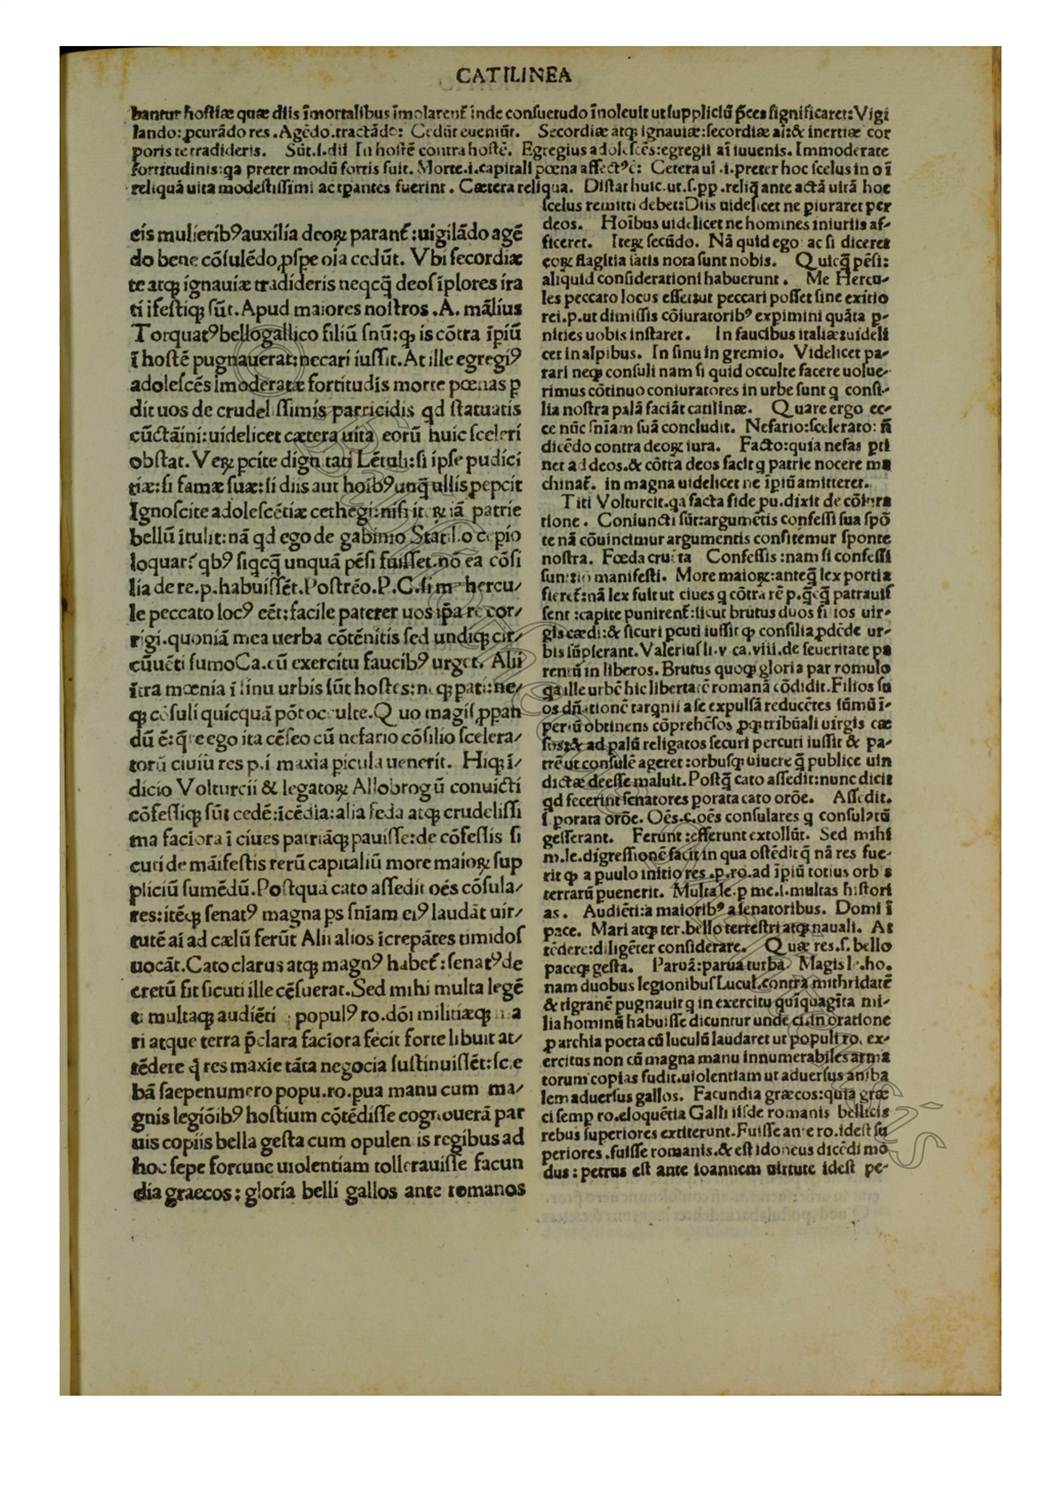 CATILINEA
bantur hostiæ quæ diis īmortalibus īmolarent᷑ īnde consuetudo īnoleuit ut suppliciū p̄ces significaret: Vigi
lando: ꝓcurādo res. Agēdo. tractādo: Cedūt eueniūt. Secordiæ atqꝫ ignauiæ: secordiæ aī: & inertiæ cor
poris te tradideris. Sūt. s. dii In hostē contra hostē. Egregius adolescēs: egregii aī iuuenis. Immoderate
fortitudinis: qa preter modū fortis fuit. Morte. i. capitali pœna affectꝰ ē: Cetera ui . i. preter hoc scelus in oī
reliquā uita modestissimi ac tꝑantes fuerint. Cætera reliqua. Distat huic. ut. s. pp . reliq ante actā uitā hoc
eis mulieribꝰ auxilia deoꝝ parant᷑: uigilādo agē
do bene cōsulēdo ꝓspe oīa cedūt. Vbi secordiæ
te atqꝫ ignauiæ tradideris neqcq̄ deos īplores ira
ti īfestiqꝫ sūt. Apud maiores nostros . A. mālius
Torquatꝰ bello gallico filiū suū: qꝫ is cōtra īpiū
ī hostē pugnauerat: necari iussit. At ille egregiꝰ
adolescēs īmoderatæ fortitudīs morte pœnas p
dit uos de crudelissimis parricidis qd statuatis
cūctāini: uidelicet cætera uita eorū huic sceleri
obstat. Veꝝ pcite dignitati Lētuli: si ipse pudici
tiæ: si famæ suæ: si diis aut hoībꝰ unq̄ ullis pepcit
Ignoscite adolescētiæ cethegi: nisi iteꝝ iā patrie
bellū ītulit: nā qd ego de gabinio Statilio cepio
loquar? qbꝰ siqcq̄ unquā pēsi fuisset. nō ea cōsi
lia de re. p. habuissēt. Postrēo. P. C. si m hercu⸗
le peccato locꝰ eēt: facile paterer uos ip̄a re cor⸗
rigi. quoniā mea uerba cōtēnitis sed undiqꝫ cir⸗
cūuēti sumo Ca. cū exercitu faucibꝰ urget. Alii
ītra mœnia ī sinu urbis sūt hostes: neqꝫ pati: ne⸗
qꝫ cōsuli quicquā pōt occulte. Quo magis ꝓpan
dū ē: q̄re ego ita cēseo cū nefario cōsilio scelera⸗
torū ciuiū res p. ī maxīa picula uenerit. Hiqꝫ ī⸗
dicio Volturcii & legatoꝝ Allobrogū conuicti
cōfessiqꝫ sūt cedē: īcēdia: alia feda atqꝫ crudelissi
ma faciora ī ciues patriāqꝫ pauisse: de cōfessis si
cuti de māifestis rerū capitaliū more maioꝝ sup
pliciū sumēdū. Postqua cato assedit oēs cōsula⸗
res: itēqꝫ senatꝰ magna ps sn̄iam eiꝰ laudāt uir⸗
tutē aī ad cælū ferūt Alii alios īcrepātes timidos
uocāt. Cato clarus atqꝫ magnꝰ habet᷑: senatꝰ de
cretū fit sicuti ille cēsuerat. Sed mihi multa legē
ti multaqꝫ audiēti populꝰ ro. dōi militiæqꝫ ma
ri atque terra p̄clara faciora fecit forte libuit at⸗
tēdere q̄ res maxīe tāta negocia sustinuissēt: scie
bā saepenumero popu. ro. pua manu cum ma⸗
gnis legiōibꝰ hostium cōtēdisse cognouerā par
uis copiis bella gesta cum opulentis regibus ad
hoc sepe fortune uiolentiam tollerauisse facun
dia graecos; gloria belli gallos ante romanos
scelus remitti debet: Diis uidelicet ne piuraret per
deos. Hoībus uidelicet ne homines iniuriis af⸗
ficeret. Iteꝝ secūdo. Nā quid ego ac si diceret
eoꝝ flagitia satis nota sunt nobis. Quicq̄ pēsi:
aliquid considerationi habuerunt. Me Hercu⸗
les peccato locus esset: ut peccari posset sine exitio
rei. p. ut dimissis cōiuratoribꝰ expimini quāta p⸗
nities uobis instaret. In faucibus italiæ: uideli
cet in alpibus. In sinu in gremio. Videlicet pa⸗
rari neqꝫ consuli nam si quid occulte facere uolue⸗
rimus cōtinuo coniuratores in urbe sunt q consi⸗
lia nostra palā faciāt catilinæ. Quare ergo ec⸗
ce nūc sn̄iam suā concludit. Nefario: scelerato: n̄
dicēdo contra deoꝝ iura. Facto: quia nefas pti
net ad deos. & cōtra deos facit q patrie nocere ma
chinat᷑. in magna uidelicet ne īpiū amitteret.
Titi Volturcii. qa facta fide pu. dixit de cōiura
tione. Coniuncti sūt: argumētis confessi sua spō
te nā cōuincimur argumentis confitemur sponte
nostra. Fœda cruēta Confessis: nam si confessi
sunt: tū manifesti. More maioꝝ: anteq̄ lex portia
fieret᷑: nā lex fuit ut ciues q cōtra rē p. q̄cq̄ patrauis
sent: capite punirent᷑: sicut brutus duos filios uir⸗
gis cædi: & sicuri pcuti iussit qꝫ consilia ꝓdēde ur⸗
bis sūpserant. Valerius li. v ca. viii. de seueritate pa
rentū in liberos. Brutus quoqꝫ gloria par romulo
qa ille urbē hic libertatē romanā cōdidit. Filios su
os dn̄ationē tarqnii a se expulsā reducētes sūmū ī⸗
periū obtinens cōprehēsos ꝓqꝫ tribūali uirgis cæ
sos: & ad palū religatos securi percuti iussit & pa⸗
trē ut consulē ageret: orbusqꝫ uiuere q̄ publice uin
dictæ deesse maluit. Postq̄ cato assedit: nunc dicit
qd fecerint senatores porata cato orōe. Assedit.
s porata orōe. Oēs. c. oēs consulares q consulatū
gesserant. Ferunt: efferunt extollūt. Sed mihi
m. le. digressionē facit in qua ostēdit q̄ nā res fue⸗
rit qꝫ a puulo initio res .p. ro. ad īpiū totius orbis
terrarū puenerit. Multa le. p me. l. multas histori
as. Audiēti: a maioribꝰ a senatoribus. Domi ī
pace. Mari atqꝫ ter. bello terrestri atqꝫ nauali. At
tēdere: diligēter considerare. Quæ res. s. bello
paceqꝫ gesta. Paruā: parua turba Magis le. ho.
nam duobus legionibus Lucul. contra mithridatē
& tigranē pugnauit q in exercitu quīquagīta mi⸗
lia hominū habuisse dicuntur unde ci. in oratione
ꝓ archia poeta cū lucului laudaret ut populi ro. ex⸗
ercitus non cū magna manu innumerabiles arma
torum copias fudit. uiolentiam ut aduersus aniba
lem aduersus gallos. Facundia græcos: quia græ
ci semp ro. eloquētia Galli iisde romanis bellicis
rebus superiores extiterunt. Fuisse ante ro. idest su
periores. fuisse romanis. & est idoneus dicēdi mo
dus: petrus est ante ioannem uirtute idest pe⸗